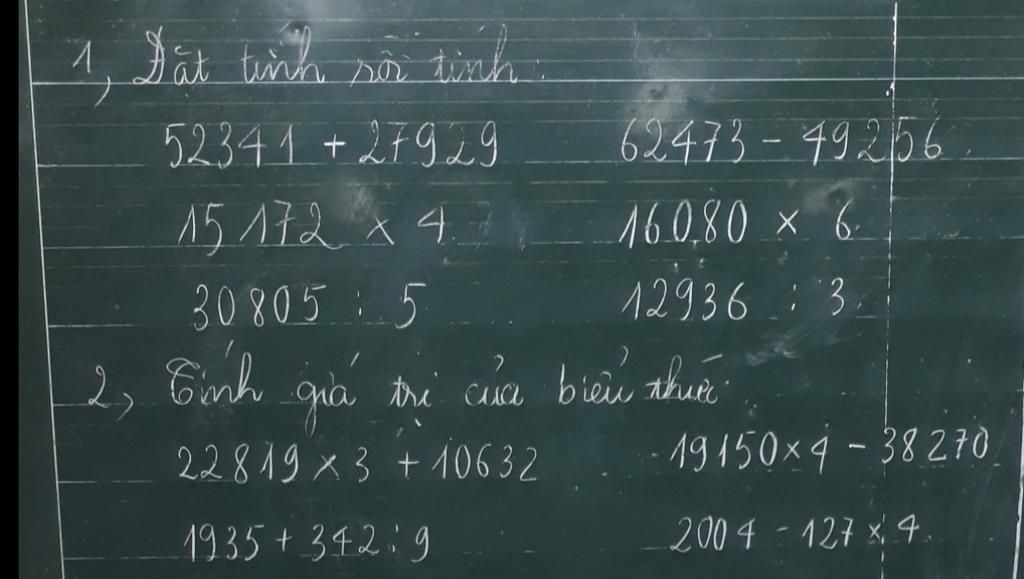 1, Đặt tính rồi tính:
52341 + 27929 62473 - 49256
15172 x 4 16080 x 6
30805 : 5 12936 : 3
2, Tính giá trị của biểu thức:
22819 x 3 + 10632 19150 x 4 - 38270
1935 + 342 : 9 2004 - 127 x 4